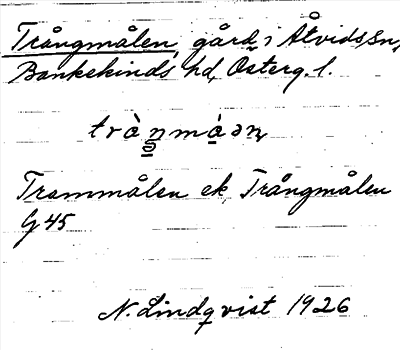 Trångmålen, gård i Åtvids sn,
Bankekinds hd, Österg. l.
Trammålen ek, Trångmålen
G 45
N. Lindqvist 1926